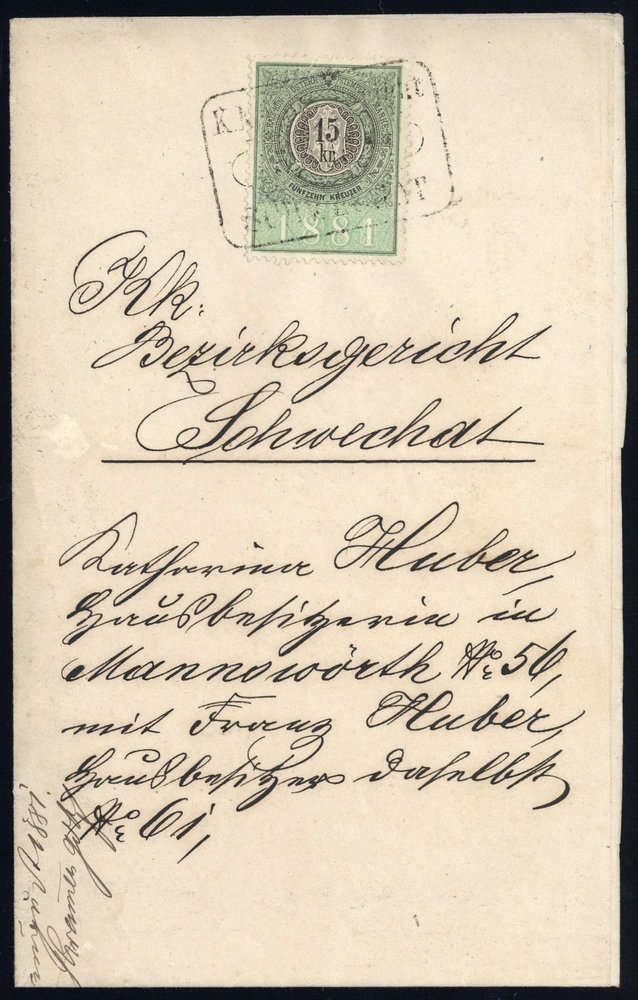 15
kr.
FÜNFZEHN KREUZER
1881
Kk.
Bezirksgericht
Schwechat
Katharina Huber,
Hausbesitzerin in
Mannswörth No. 56,
mit Franz Huber,
Hausbesitzer daselbst
No. 61,